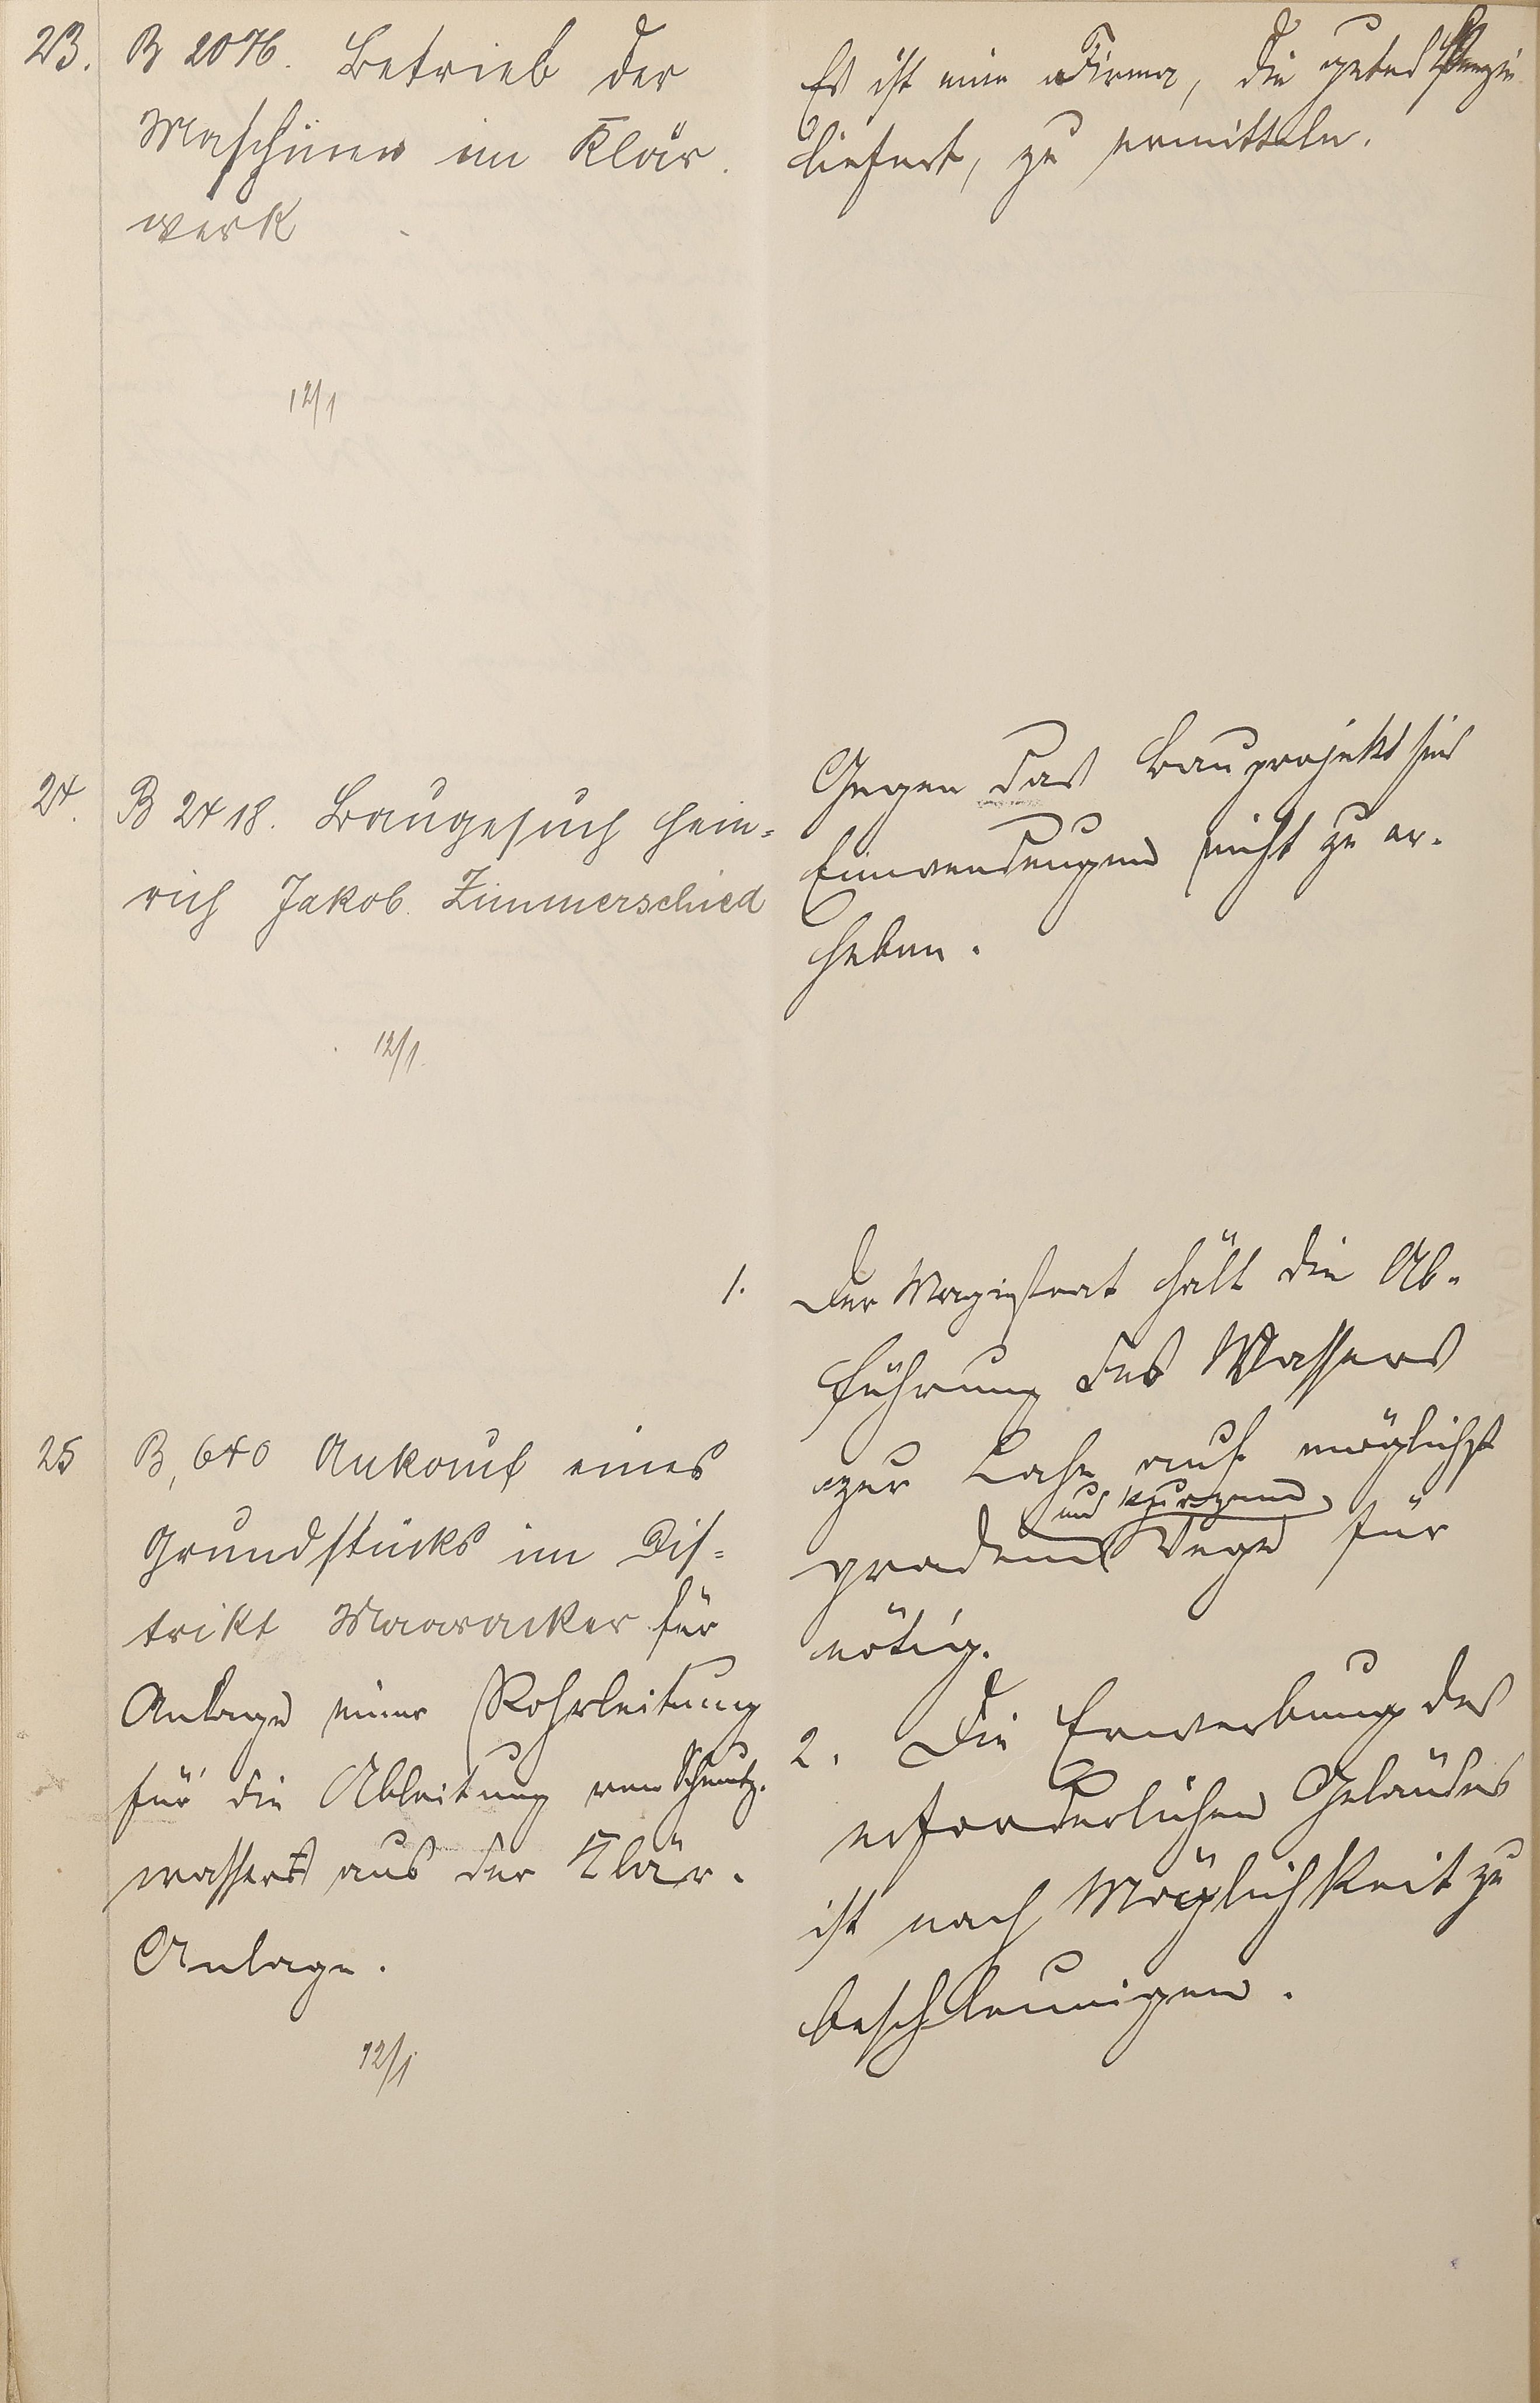 23.
B 2076. Betrieb der
Maschinen im Klär-
werk
12/1
Es ist eine Firma, die gutes Benzin
liefert, zu ermitteln.
24.
B 2418. Baugesuch Hein-
rich Jakob Zimmerschied
12/1.
Gegen das Bauprojekt sind
Einwendungen nicht zu er-
heben.
25
B, 640 Ankauf eines
Grundstücks im Dis-
trikt Maaracker für
Anlage einer Rohrleitung
für die Ableitung von Schmutz-
wasser aus der Klär-
Anlage.
12/1
1. Der Magistrat hält die Ab-
führung des Wassers
zur Lahn auf möglichst
und kurzem
gradem Wege für
nötig.
2. Die Erwerbung des
erforderlichen Geländes
ist nach Möglichkeit zu
beschleunigen.